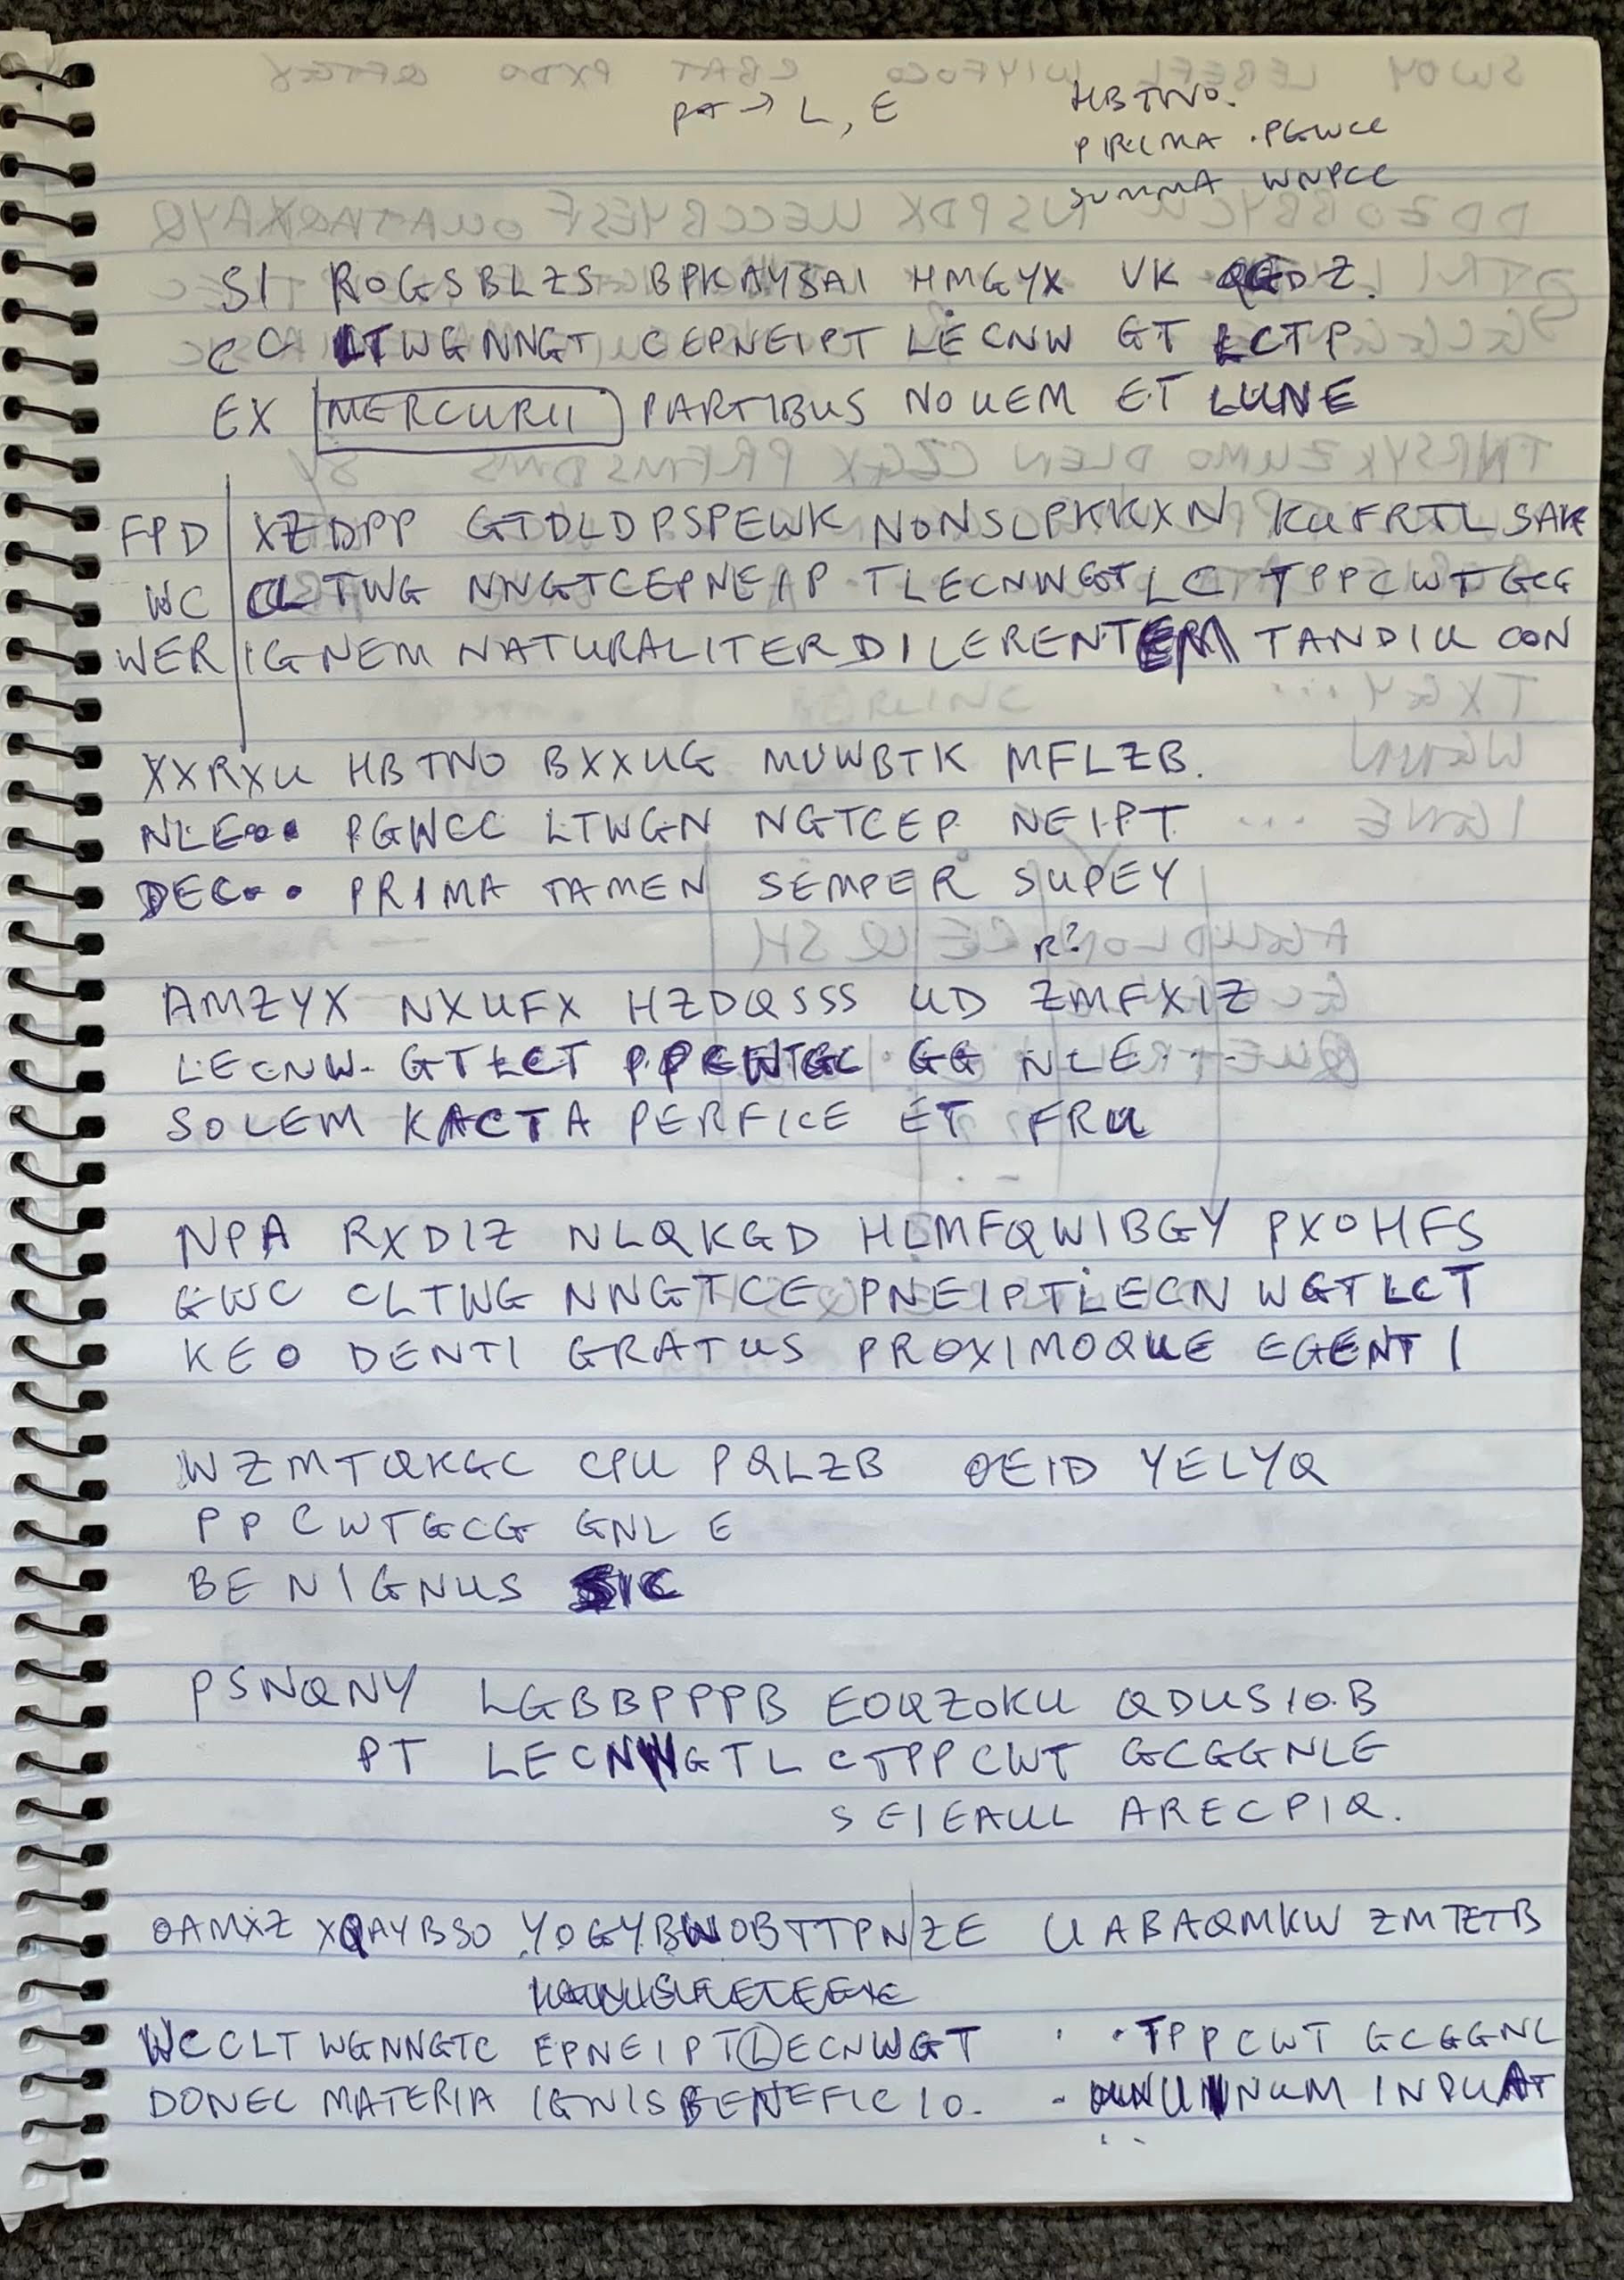 pt → L, E
HBTNO.
PRIMA . PGWCC
SUMMA WNPCC
SI ROGSBLZS BPKAYSAI HMGYX VK QGDZ.
CC LTWGNNGT CEPNEIPT LECNW GT LCTP
EX MERCURII PARTIBUS NOUEM ET LUNE
FPD XZDPP GTDLDPSPEWK NONSLPKKXN KUFRTLSAK
WC CLTWG NNGTCEPNEIP TLECNWGTLC TPPCWTGCG
WER IGNEM NATURALITER DILERENTEM TANDIU CON
XXRXU HBTNO BXXUG MUWBTK MFLZB.
NLE... PGWCC LTWGN NGTCEP NEIPT
DEC... PRIMA TAMEN SEMPER SUPEY
R?
AMZYX NXUFX HZDQSSS UD ZMFXIZ
LECNW. GTLCT PPCWTGC GG NLE...
SOLEM KACTA PERFICE ET FRU
NPA RXDIZ NLQKGD HLMFQWIBGY PXOHFS
GWC CLTWG NNGTCE PNEIPTLECN WGTLCT
KEO DENTI GRATUS PROXIMOQUE EGENTI
WZMTQKGC CPU PQLZB OEID YELYQ
PPCWTGCG GNLE
BENIGNUS SIC
PSNQNY LGBBPPPB EOQZOKU QDUSIOB
PT LECNWGTL CTPPCWT GCGGNLE
SEIEAUL ARECPIQ.
OAMXZ XQAYBSO YOGYBWOBTTPN/ZE UABAQMKW ZMTETB
WCCLT WGNNGTC EPNEIPTLECNWGT . . TPPCWT GCGGNL
DONEC MATERIA IGNISBENEFICIO. - UNUM INPUAT